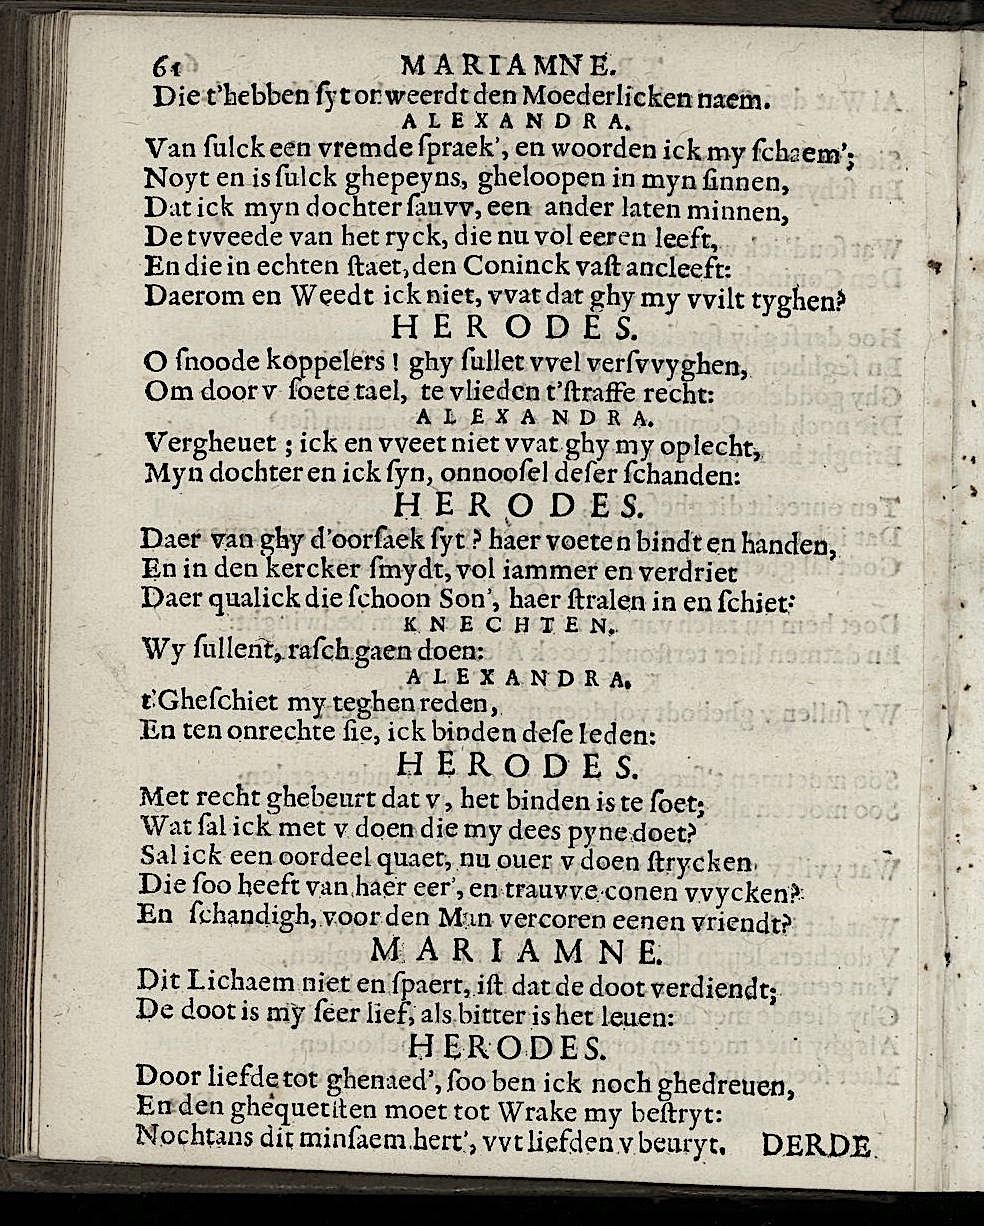 61 MARIAMNE.
Die t'hebben ſyt onweerdt den Moederlicken naem.
ALEXANDRA.
Van ſulck een vremde ſpraek', en woorden ick my ſchaem';
Noyt en is ſulck ghepeyns, gheloopen in myn ſinnen,
Dat ick myn dochter ſauvv, een ander laten minnen,
De tvveede van het ryck, die nu vol eeren leeft,
En die in echten ſtaet, den Coninck vaſt ancleeft:
Daerom en Weedt ick niet, vvat dat ghy my vvilt tyghen?
HERODES.
O ſnoode koppelers ! ghy ſullet vvel verſvvyghen,
Om door v ſoete tael, te vlieden t'ſtraffe recht:
ALEXANDRA.
Vergheuet ; ick en vveet niet vvat ghy my oplecht,
Myn dochter en ick ſyn, onnooſel deſer ſchanden:
HERODES.
Daer van ghy d'oorſaek ſyt ? haer voeten bindt en handen,
En in den kercker ſmydt, vol iammer en verdriet
Daer qualick die ſchoon Son', haer ſtralen in en ſchiet:
KNECHTEN.
Wy ſullent, raſch gaen doen:
ALEXANDRA.
t'Gheſchiet my teghen reden,
En ten onrechte ſie, ick binden deſe leden:
HERODES.
Met recht ghebeurt dat v, het binden is te ſoet;
Wat ſal ick met v doen die my dees pyne doet?
Sal ick een oordeel quaet, nu ouer v doen ſtrycken,
Die ſoo heeft van haer eer', en trauvve conen vvycken?
En ſchandigh, voor den Man vercoren eenen vriendt?
MARIAMNE.
Dit Lichaem niet en ſpaert, iſt dat de doot verdiendt;
De doot is my ſeer lief, als bitter is het leuen:
HERODES.
Door liefde tot ghenaed', ſoo ben ick noch ghedreuen,
En den ghequetſten moet tot Wrake my beſtryt:
Nochtans dit minſaem hert', vvt liefden v beuryt. DERDE